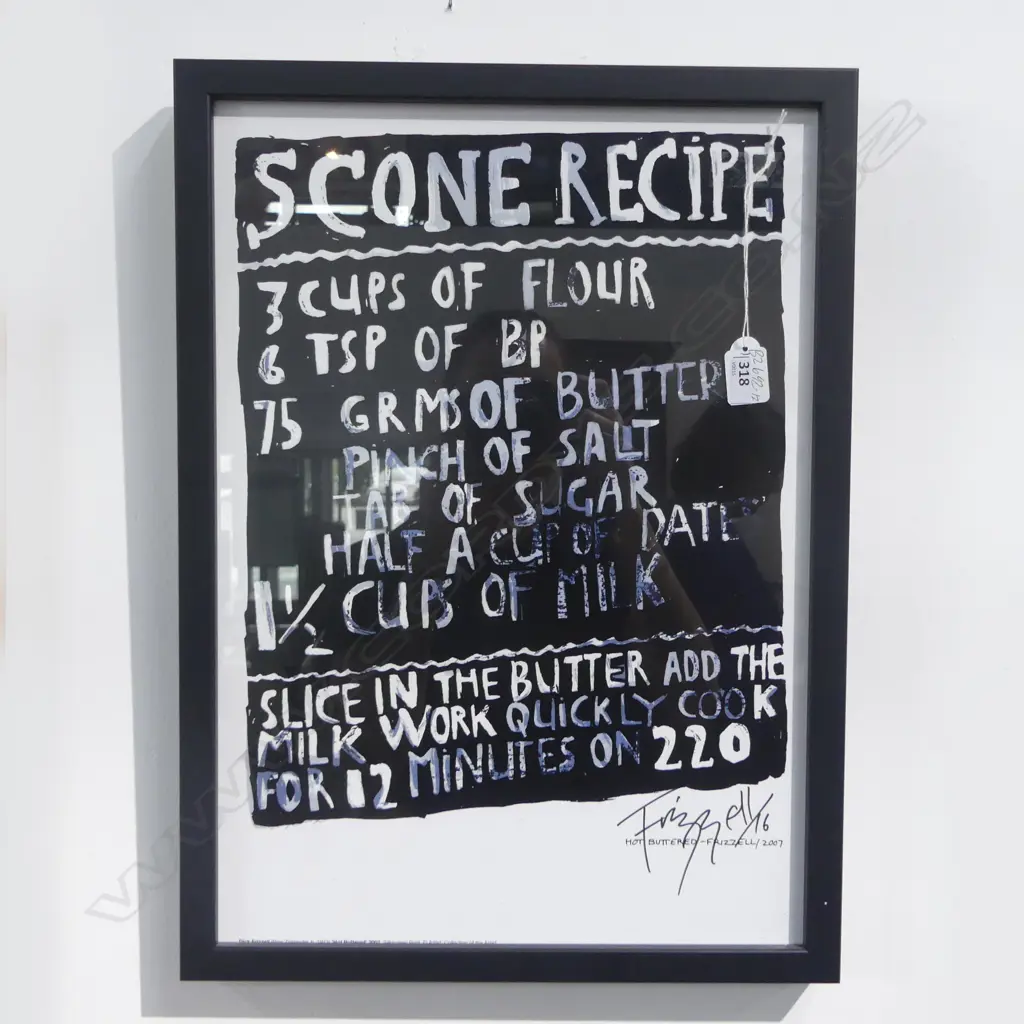 SCONE RECIPE
3 CUPS OF FLOUR
6 TSP OF BP
75 GRMS OF BUTTER
PINCH OF SALT
TAB OF SUGAR
HALF A CUP OF DATES
1 1/2 CUPS OF MILK
SLICE IN THE BUTTER ADD THE
MILK WORK QUICKLY COOK
FOR 12 MINUTES ON 220
Frizzell 16
HOT BUTTERED - FRIZZELL / 2007
318